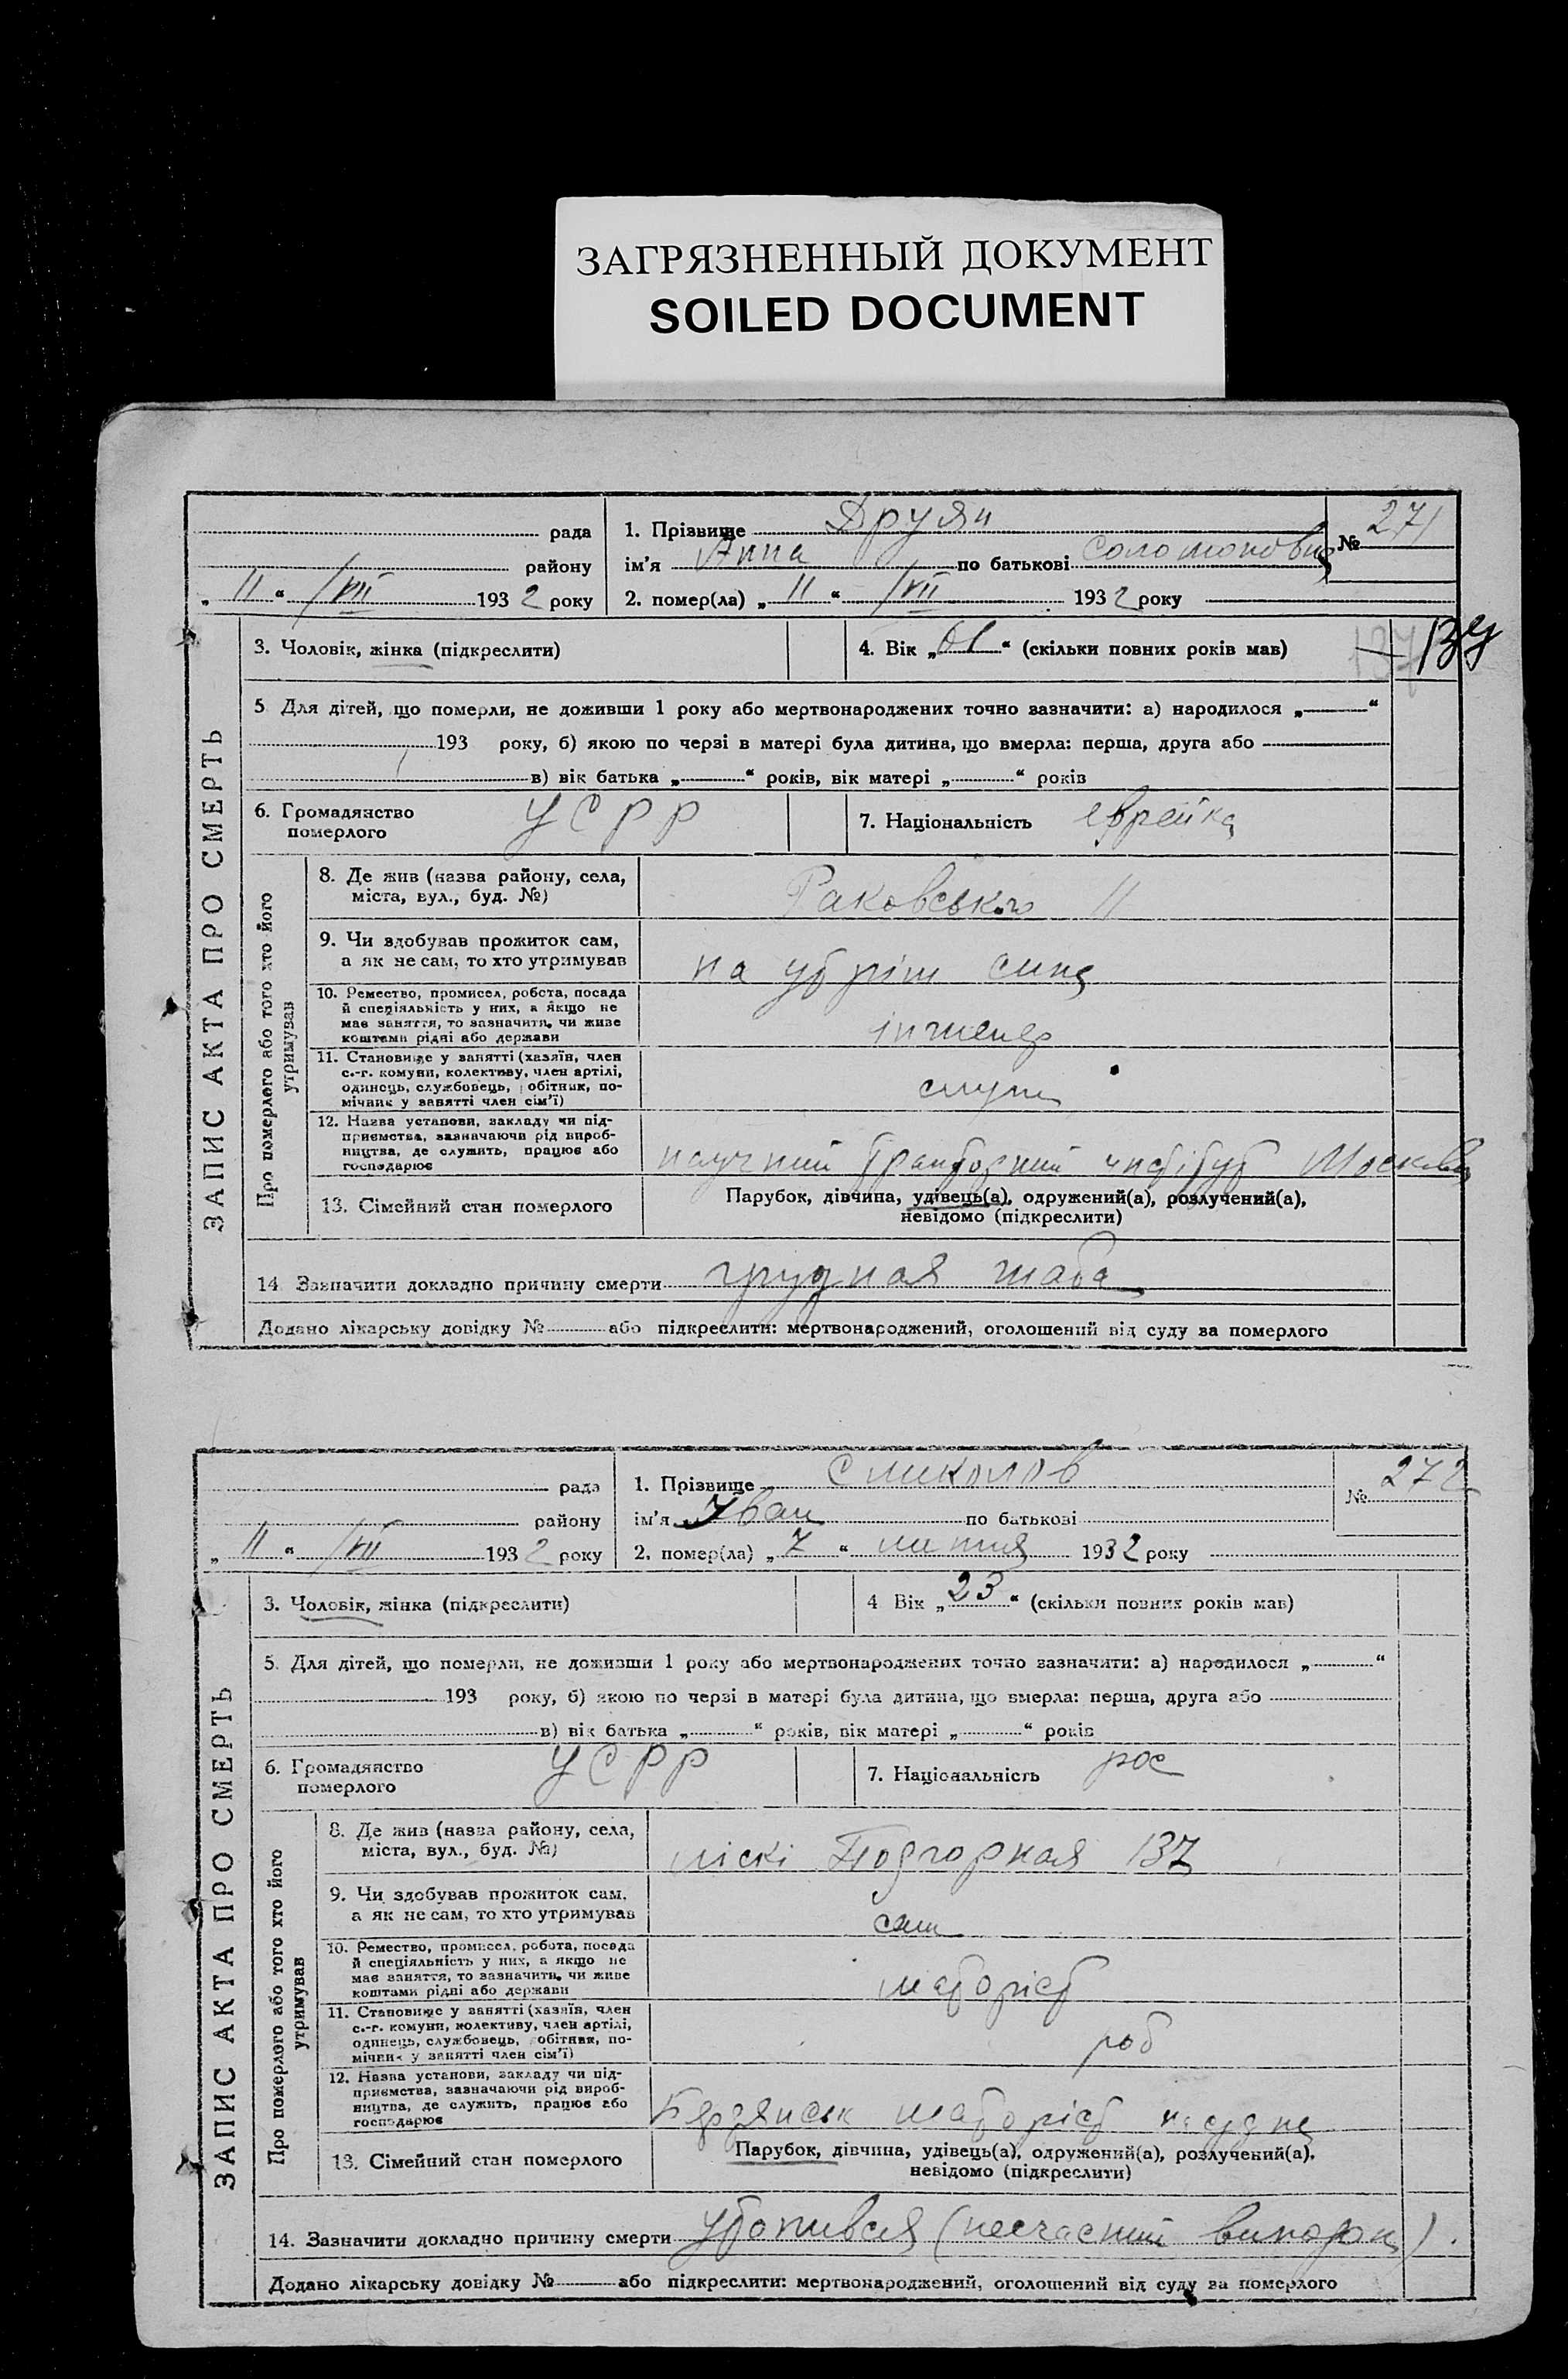 ЗАГРЯЗНЕННЫЙ ДОКУМЕНТ
SOILED DOCUMENT
рада
району
„ 11 “ /VII 1932 року
1. Прізвище Друян
ім'я Анна по батькові Соломоновна
№ 271
2. помер(ла) „ 11 “ /VII 1932 року
ЗАПИС АКТА ПРО СМЕРТЬ
3. Чоловік, жінка (підкреслити)
4. Вік „ 61 “ (скільки повних років мав)
137
5 Для дітей, що померли, не доживши 1 року або мертвонароджених точно зазначити: а) народилося „ “
193 року, б) якою по черзі в матері була дитина, що вмерла: перша, друга або
в) вік батька „ “ років, вік матері „ “ років
6. Громадянство
померлого
УСРР
7. Національність еврейка
Про померлого або того хто його
утримував
8. Де жив (назва району, села,
міста, вул., буд. №)
Раковського 11
9. Чи здобував прожиток сам,
а як не сам, то хто утримував
на утрім сина
10. Ремество, промисел, робота, посада
й спеціяльність у них, а якщо не
має заняття, то зазначити, чи живе
коштами рідні або держави
інженер
11. Становище у занятті (хазяїн, член
с.-г. комуни, колективу, член артілі,
одинець, службовець, обітник, по-
мічник у занятті член сім'ї)
служ
12. Назва установи, закладу чи під-
приємства, зазначаючи рід вироб-
ництва, де служить, працює або
господарює
научний інстітут Москва
13. Сімейний стан померлого
Парубок, дівчина, удівець(а), одружений(а), розлучений(а),
невідомо (підкреслити)
14 Зазначити докладно причину смерти грудная жаба
Додано лікарську довідку № або підкреслити: мертвонароджений, оголошений від суду за померлого
рада
району
„ 11 “ /VII 1932 року
1. Прізвище
ім'я Иван по батькові
№ 272
2. помер(ла) „ 7 “ липня 1932 року
ЗАПИС АКТА ПРО СМЕРТЬ
3. Чоловік, жінка (підкреслити)
4 Вік „ 23 “ (скільки повних років мав)
5. Для дітей, що померли, не доживши 1 року або мертвонароджених точно зазначити: а) народилося „ “
193 року, б) якою по черзі в матері була дитина, що вмерла: перша, друга або
в) вік батька „ “ років, вік матері „ “ років
6. Громадянство
померлого
УСРР
7. Національність рос
Про померлого або того хто його
утримував
8. Де жив (назва району, села,
міста, вул., буд. №)
ліскі Подгорная 137
9. Чи здобував прожиток сам,
а як не сам, то хто утримував
сам
10. Ремество, промисел, робота, посада
й спеціяльність у них, а якщо не
має заняття, то зазначити, чи живе
коштами рідні або держави
маторіст
11. Становище у занятті (хазяїн, член
с.-г. комуни, колективу, член артілі,
одинець, службовець, обітник, по-
мічник у занятті член сім'ї)
роб
12. Назва установи, закладу чи під-
приємства, зазначаючи рід вироб-
ництва, де служить, працює або
господарює
Бердянськ маторіст на судне
13. Сімейний стан померлого
Парубок, дівчина, удівець(а), одружений(а), розлучений(а),
невідомо (підкреслити)
14. Зазначити докладно причину смерти утопився (несчасний випадок).
Додано лікарську довідку № або підкреслити: мертвонароджений, оголошений від суду за померлого